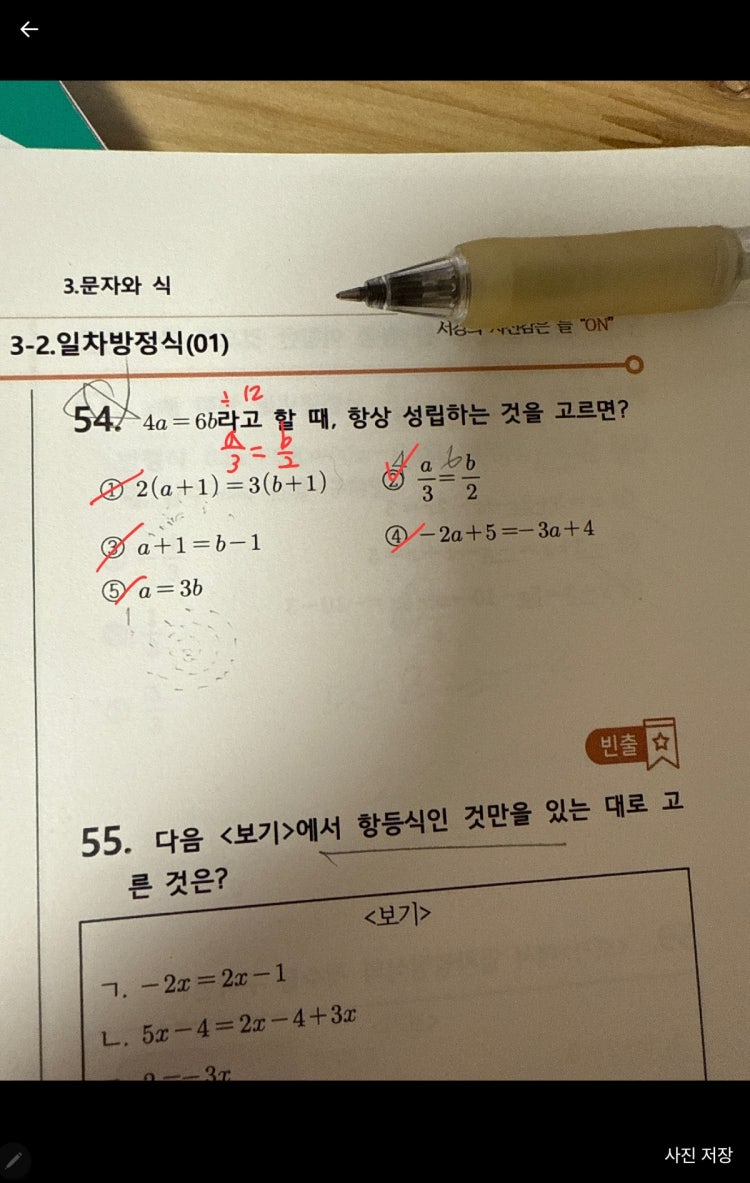 3.문자와 식
"ON"
3-2.일차방정식(01)
÷ 12
54. 4a=6b라고 할 때, 항상 성립하는 것을 고르면?
a/3 = b/2
4 6
① 2(a+1)=3(b+1) ② a/3=b/2
③ a+1=b-1 ④ -2a+5=-3a+4
⑤ a=3b
빈출
55. 다음 <보기>에서 항등식인 것만을 있는 대로 고
른 것은?
<보기>
ㄱ. -2x=2x-1
ㄴ. 5x-4=2x-4+3x
사진 저장